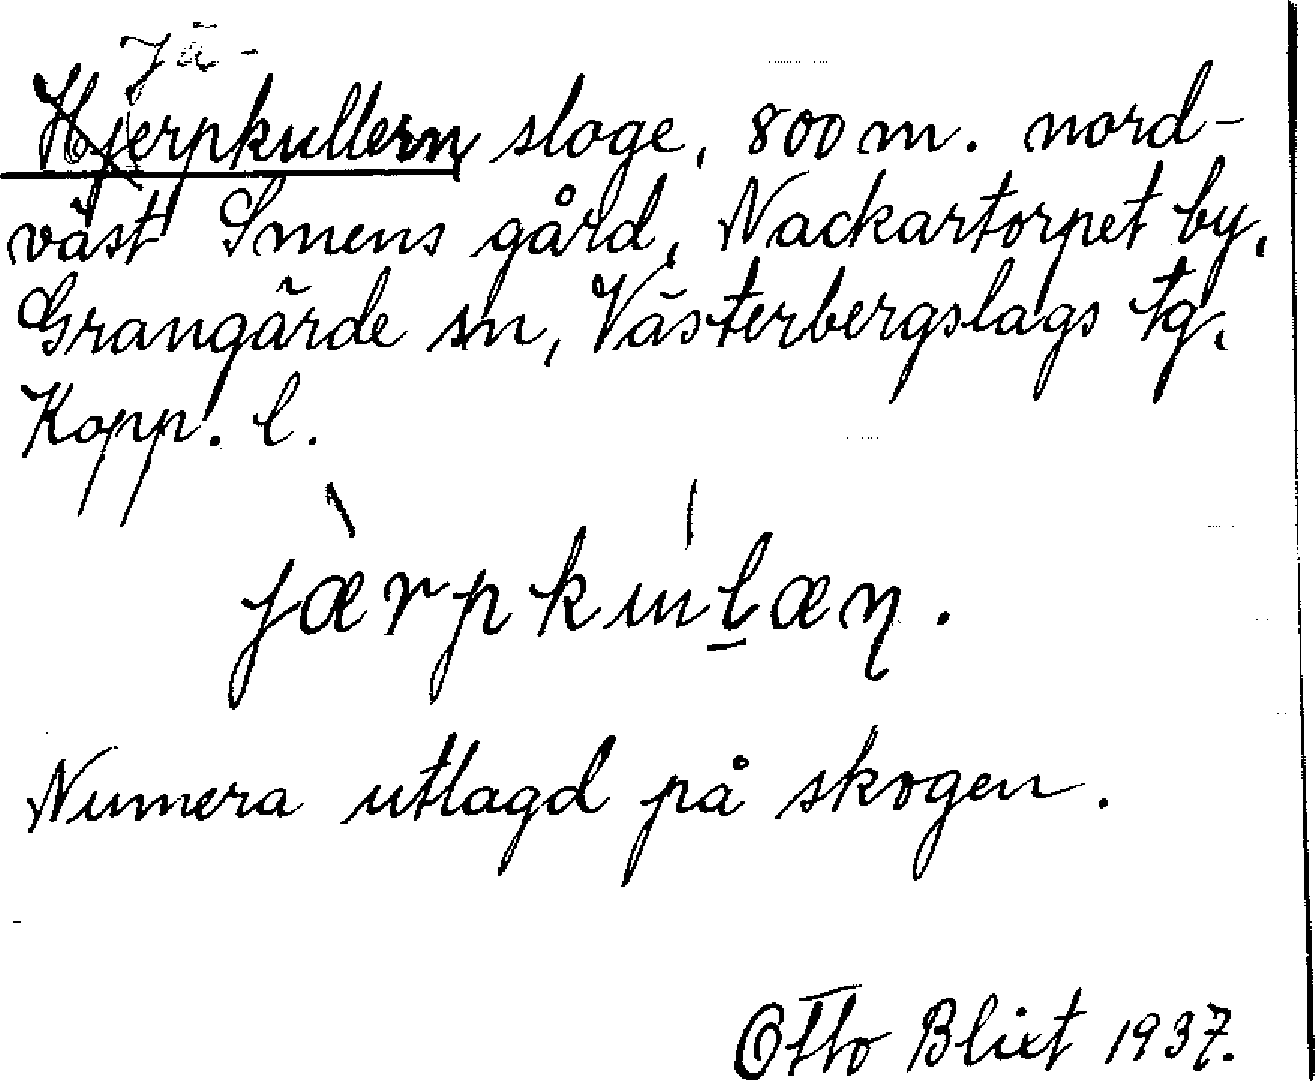 Jä-
Hjerpkullern sloge, 800 m. nord-
väst Smens gård, Nackartorpet by,
Grangärde sn, Västerbergslags tg.
Kopp. l.
jærpkul̠æꞃ.
Numera utlagd på skogen.
Otto Blixt 1937.